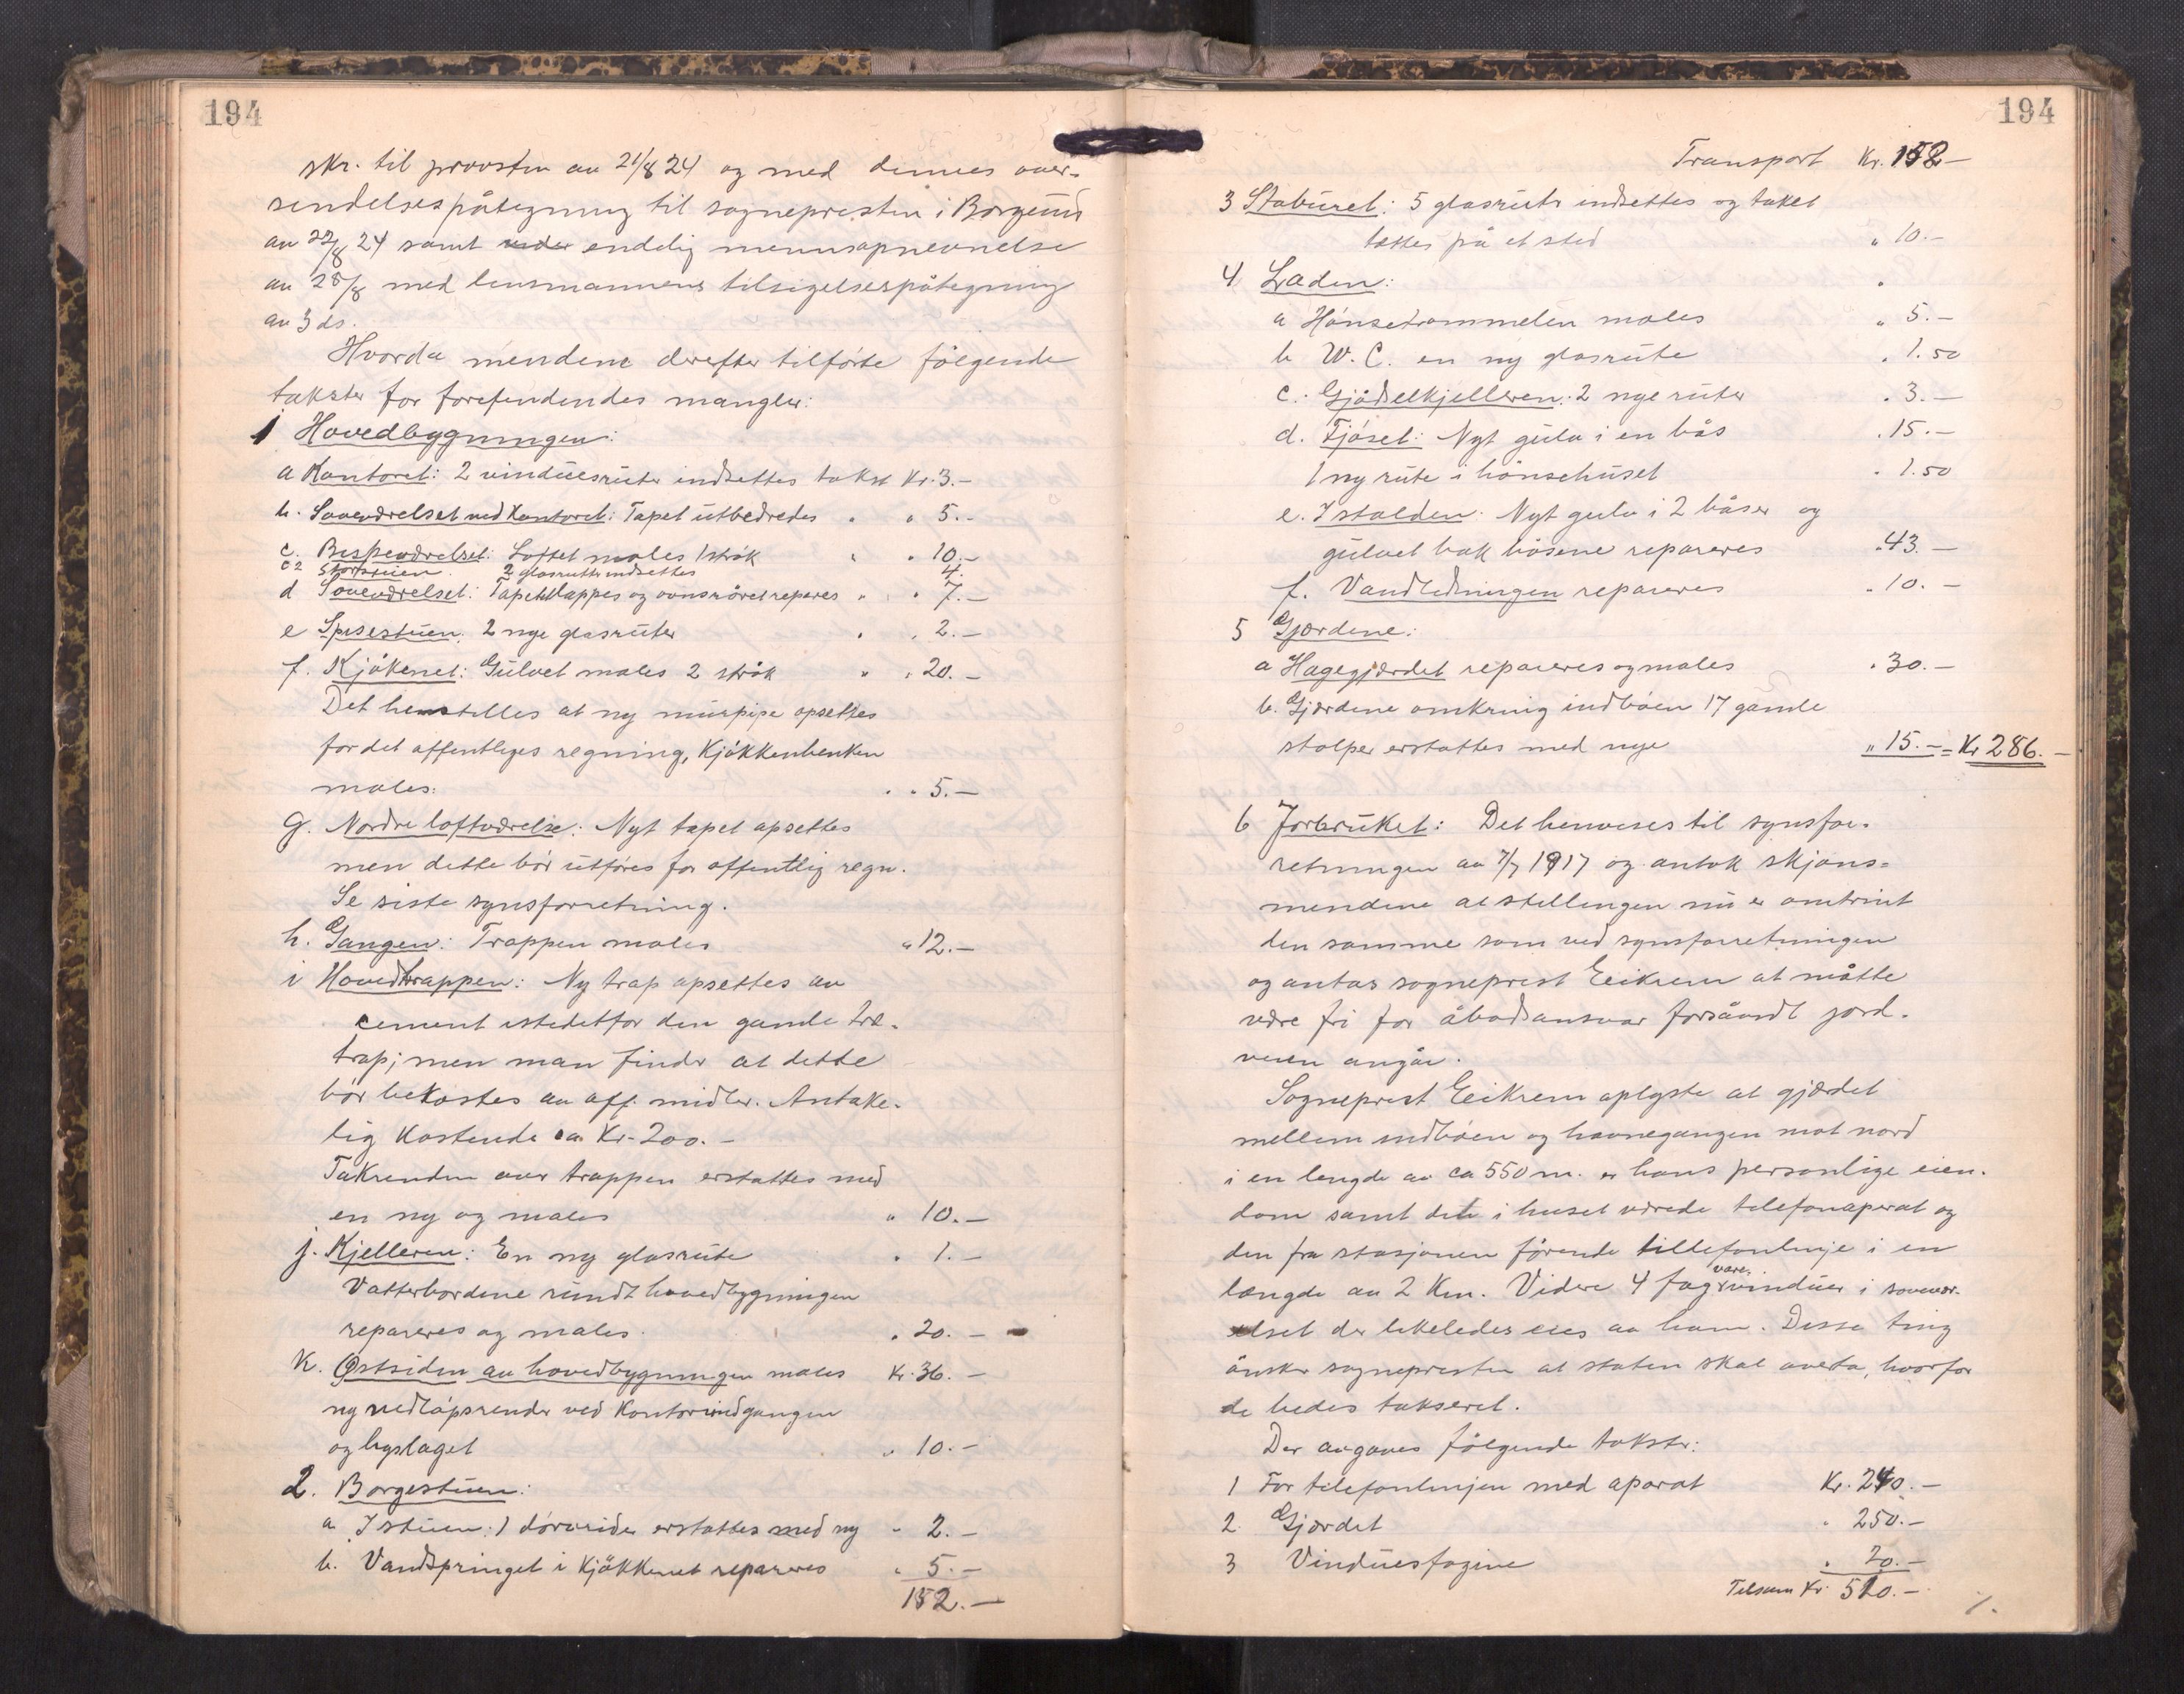 194
skr. til provsten av 21/8 24 og med dennes over-
sendelsespåtegning til sognepresten i Borgund
av 22/8 24 samt endelig mennsopnevnelse
av 25/8 med lensmannens tilsigelsespåtegning
av 3 ds.
Hvorda mendene derefter tilførte følgende
takster for forefindendes mangler:
1 Hovedbygningen:
a Kontoret: 2 vinduesruter indsettes takst Kr. 3.-
b. Soveværelset ved Kontoret: Tapet utbedredes " " 5.-
c. Bispeværelset: Loftet males 1 strøk " " 10.-
c2 Storstuen. 2 glasruter indsettes 4.
d Soveværelset: Tapet lappes og ovnsrøret repares " " 7.-
e Spisestuen: 2 nye glasruter " " 2.-
f. Kjøkenet: Gulvet males 2 strøk " " 20.-
Det henstilles at ny murpipe opsettes
for det offentliges regning, Kjøkkenbenken
males. " " 5.-
g. Nordre loftværelse: Nyt tapet opsettes
men dette bør utføres for offentlig regn.
Se siste synsforretning.
h. Gangen: Trappen males " 12.-
i Hovedtrappen: Ny trap opsettes av
cement istedetfor den gamle træ-
trap; men man finder at dette
bør bekostes av off. midler. Antake-
lig Kostende ca Kr. 200.-
Takrenden over trappen erstattes med
en ny og males " 10.-
j. Kjelleren: En ny glasrute " 1.-
Vatterbordene rundt hovedbygningen
repareres og males. " 20.-
K. Østsiden av hovedbygningen males Kr. 36.-
ny nedløpsrender ved Kontorindgangen
og bislaget " 10.-
2. Borgestuen:
a I stuen: 1 dørvrider erstattes med ny " 2.-
b. Vandspringet i Kjøkkenet repareres " 5.-
152.-
194
Transport Kr. 152-
3 Staburet: 5 glasruter indsettes og taket
tættes på et sted " 10.-
4 Laden:
a Hønsetrommelen males " 5.-
b W.C. en ny glasrute " 1.50
c. Gjødselkjelleren: 2 nye ruter " 3.-
d. Fjøset: Nyt gulv i en bås " 15.-
1 ny rute i hønsehuset " 1.50
e. I stalden. Nyt gulv i 2 båser og
gulvet bak båsene repareres " 43.-
f. Vandledningen repareres " 10.-
5 Gjerdene:
a Hagegjærdet repareres og males " 30.-
b. Gjerdene omkring indbøen 17 gamle
stolper erstattes med nye " 15.- = Kr 286.-
6 Jorbruket: Det henvises til synsfor-
retningen av 7/7 1917 og antok skjøns=
mendene at stellingen nu er omtrint
den samme som ved synsforretningen
og antas sogneprest Eeikrem at måtte
være fri for åbodsansvar forsåvidt jord-
veien angår.
Sogneprest Eeikrem oplyste at gjærdet
mellem indbøen og havnegangen mot nord
i en lengde av ca 550 m. er hans personlige eien-
dom samt det i huset værende telefonaparat og
den fra stasjonen førende tillefonlinje i en
længde av 2 Km. Videre 4 fag vare vinduer i sovevær-
elset der likeledes eies av ham. Disse ting
ønsker sognepresten at staten skal overta, hvorfor
de bedes taksert.
Der avgaves følgende takster:
1 For telefonlinjen med aparat Kr. 240.-
2 Gjærdet " 250.-
3 Vinduesfagene " 20.-
Tilsam Kr. 510.-